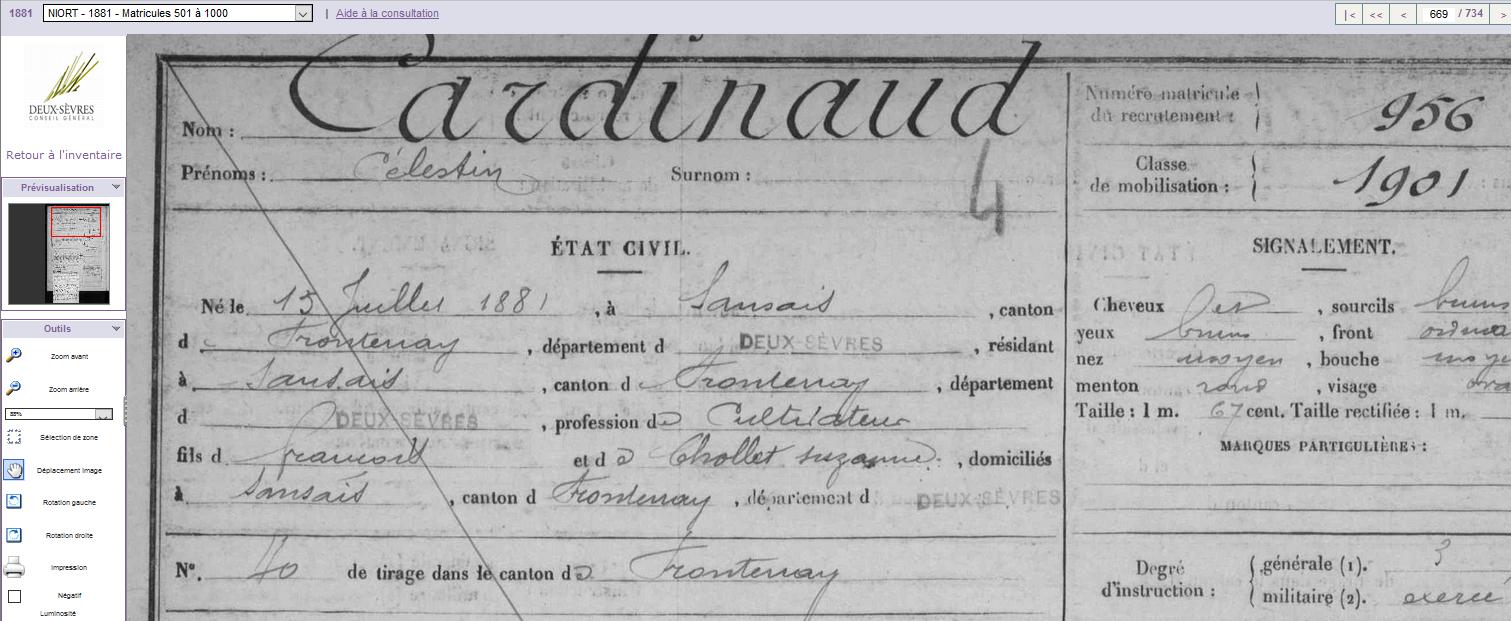 1881 NIORT - 1881 - Matricules 501 à 1000 | Aide à la consultation |< << < 669 / 734 >
DEUX-SÈVRES
CONSEIL GÉNÉRAL
Retour à l'inventaire
Prévisualisation
Outils
Zoom avant
Zoom arrière
88%
Sélection de zone
Déplacement image
Rotation gauche
Rotation droite
Impression
Négatif
Luminosité
Nom : Cardinaud
Prénoms : Célestin Surnom :
4
ÉTAT CIVIL.
Né le 15 Juillet 1881, à Sansais, canton
d Frontenay, département d DEUX-SÈVRES, résidant
à Sansais, canton d Frontenay, département
d DEUX-SÈVRES, profession de Cultivateur
fils d françois et de Chollet suzanne, domiciliés
à Sansais, canton d Frontenay, département d DEUX-SÈVRES
N°. 40 de tirage dans le canton de Frontenay
Numéro matricule du recrutement : 956
Classe de mobilisation : 1901
SIGNALEMENT.
Cheveux , sourcils bruns
yeux bruns, front ordina
nez moyen, bouche moye
menton rond, visage ova
Taille : 1 m. 67 cent. Taille rectifiée : 1 m.
MARQUES PARTICULIÈRES :
Degré d'instruction : générale (1). 3
militaire (2). exercé